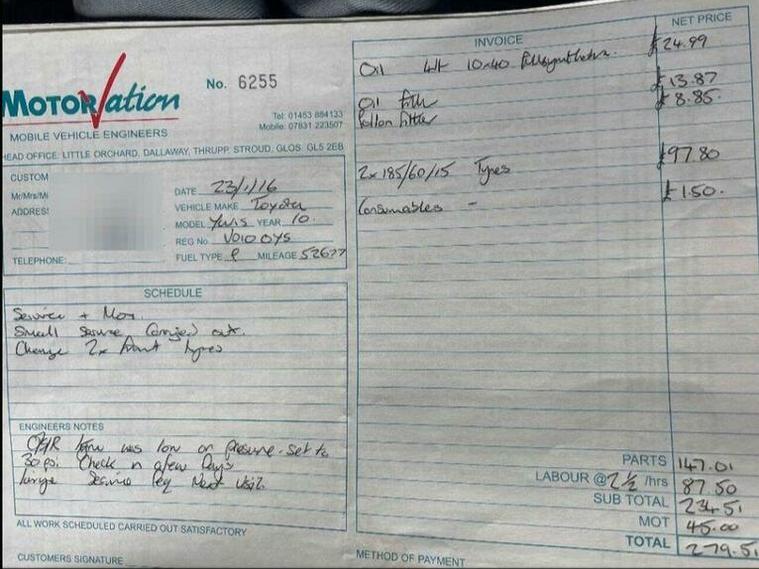 MOTORVation
MOBILE VEHICLE ENGINEERS
No. 6255
Tel: 01453 884133
Mobile: 07831 223507
HEAD OFFICE: LITTLE ORCHARD, DALLAWAY, THRUPP, STROUD, GLOS. GL5 2EB
CUSTOM
Mr/Mrs/Mi
ADDRES
TELEPHONE:
DATE 23/1/16
VEHICLE MAKE Toyota
MODEL Yaris YEAR 10
REG No. VO10 OYS
FUEL TYPE P MILEAGE 52677
SCHEDULE
Service + Mot
Small Service Carried out.
Change 2x front Tyres
ENGINEERS NOTES
O/S/R Tyre was low on pressure - set to
30 psi. Check in a few Days
Large Service Req Next Visit.
ALL WORK SCHEDULED CARRIED OUT SATISFACTORY
CUSTOMERS SIGNATURE
INVOICE NET PRICE
Oil 4lt 10-40 Fullsynthetic. £24.99
Oil filter £13.87
Pollen filter £8.85.
2x 185/60/15 Tyres £97.80
Consumables - £1.50.
PARTS 147.01
LABOUR @ 2½ /hrs 87.50
SUB TOTAL 234.51
MOT 45.00
TOTAL 279.51
METHOD OF PAYMENT